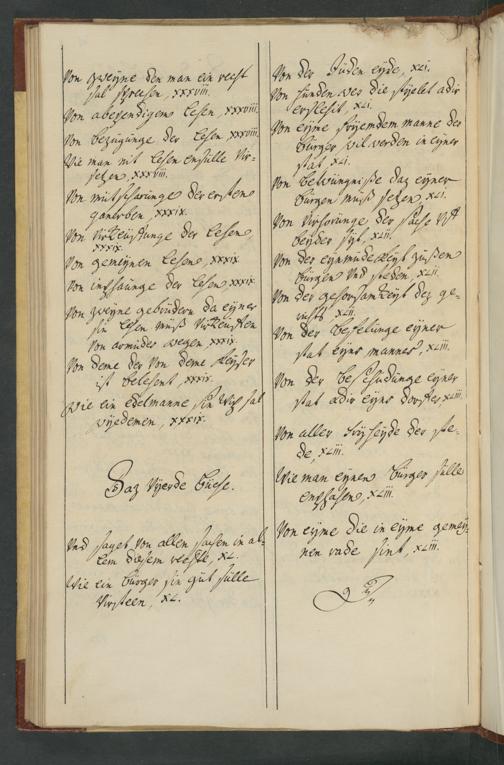 Von zweyne den man ein recht
sal sprechen, XXXVIII.
Von abesendigem lehen, XXXVIII.
Von bezugunge der lehen XXXVIII.
Wie man mit lehen ensulle vir-
setzen, XXXVIII.
Von mutscharunge der ersteno
ganerben XXXIX.
Von der lehen
XXXIX.
Von gemeynen lehen, XXXIX
Von der lehen XXXIX
Von zweyne gebrudern da eyner
sin lehen muß
von armuder wegen XXXIX.
Von deme der von deme keyser
ist belehent, XXXIX.
Wie ein edelmanne sin wyp sal
wyedemen, XXXIX.
Daz vyerde buche.
Und saget von allen sachen in al-
lem diesem rechte, XL.
Wie ein burger sin gut sulle
virsteen, XL.
Von der Juden eyde, XLI.
Von hunden wer die styelet adir
ersleht, XLI.
Von eyme fryemdem manne der
burger wil werden in eyner
stat XLI.
Von daz eyner
burgen muß setzen, XLI.
Von der sache
beyder syt, XLII.
Von der eynmudekeyt zusßen
burgen und steden, XLII.
Von der gehorsamkeyt dez ge-
richts XLII.
Von der bestelunge eyner
stat eyns mannes, XLIII.
Von der beschudunge eyner
stat adir eyns dorffes XLIII.
Von aller fryheyde der ste-
de, XLIII.
Wie man eynen burger sulle
enphahen, XLIII.
Von eyme die in eyme gemey-
nen rade sint, XLIII.